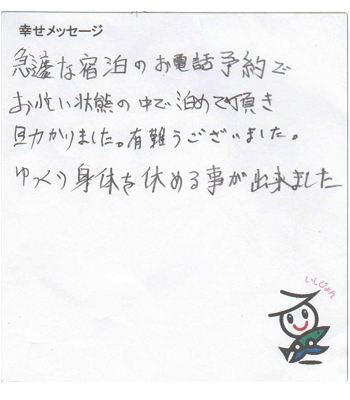 幸せメッセージ
急遽な宿泊のお電話予約で
お忙い状態の中で泊めて頂き
助かりました。有難うございました。
ゆっくり身体を休める事が出来ました
いしぴょん